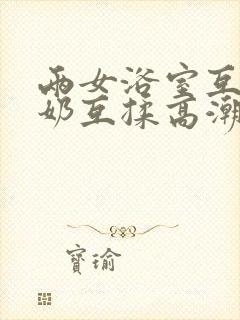 两女浴室互
奶互揉高潮
寶瑜